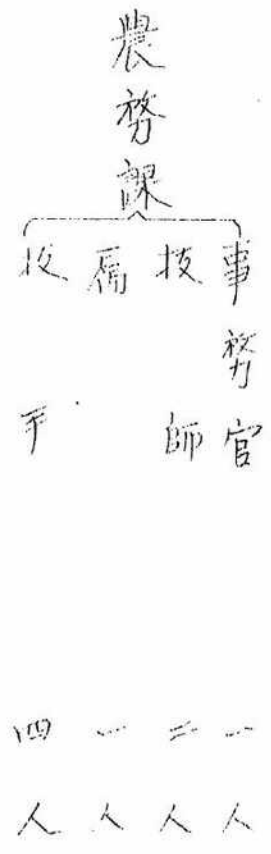 農務課
事務官 一人
技師 二人
属 一人
技手 四人